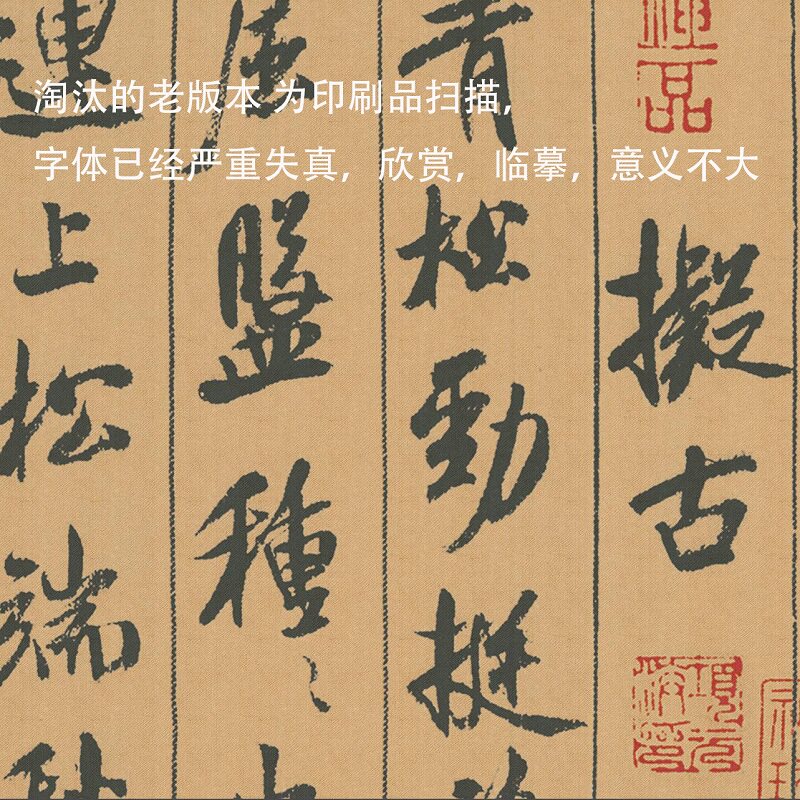 淘汰的老版本 为印刷品扫描，
字体已经严重失真，欣赏，临摹，意义不大
擬古
項元汴印
青松勁挺
屈盤種〻
連上松端